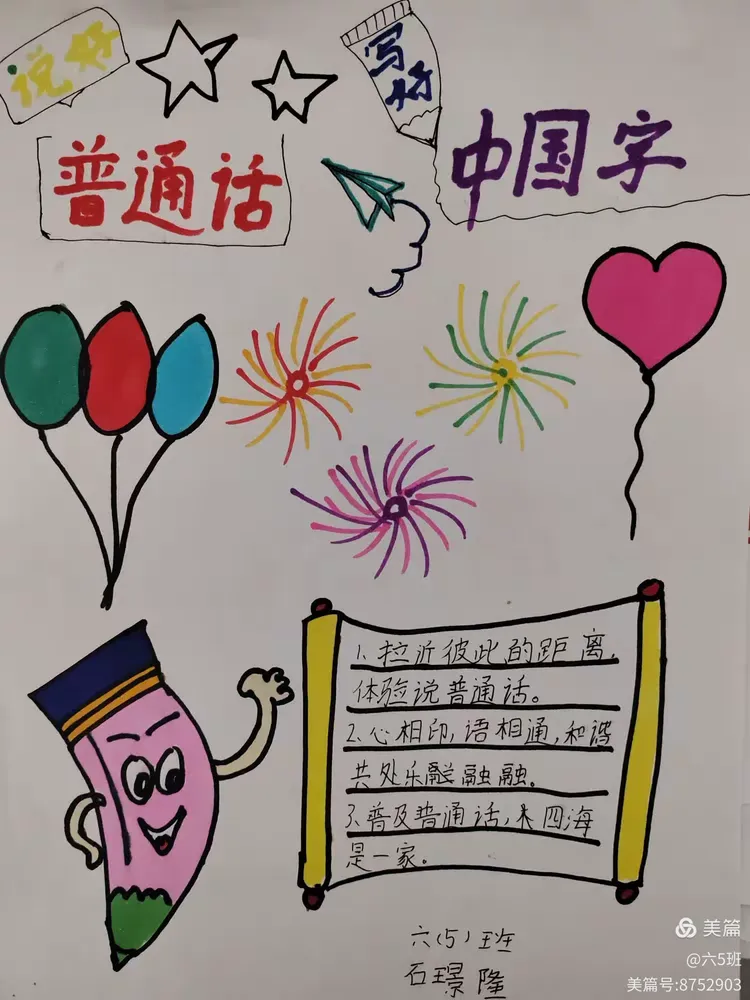 说好
写好
普通话
中国字
1、拉近彼此的距离,
体验说普通话。
2、心相印,语相通,和谐
共处乐融融融。
3、普及普通话,
四海
是一家。
六(5)班
石璟隆
美篇
@六5班
美篇号:8752903